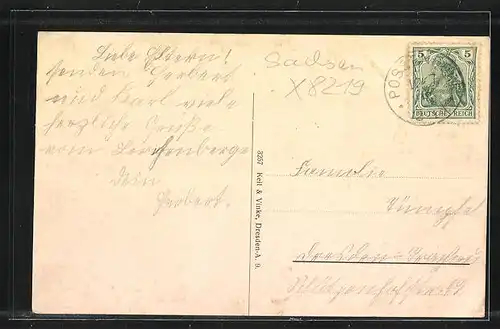 Liebe Eltern!
senden Herbert
und Karl viele
herzliche Grüße
vom Lerchenberge
Herbert.
Sachsen
X8219
5 5
DEUTSCHES REICH
3257 Keil & Vinke, Dresden-A. 9.
Familie
Dresden-